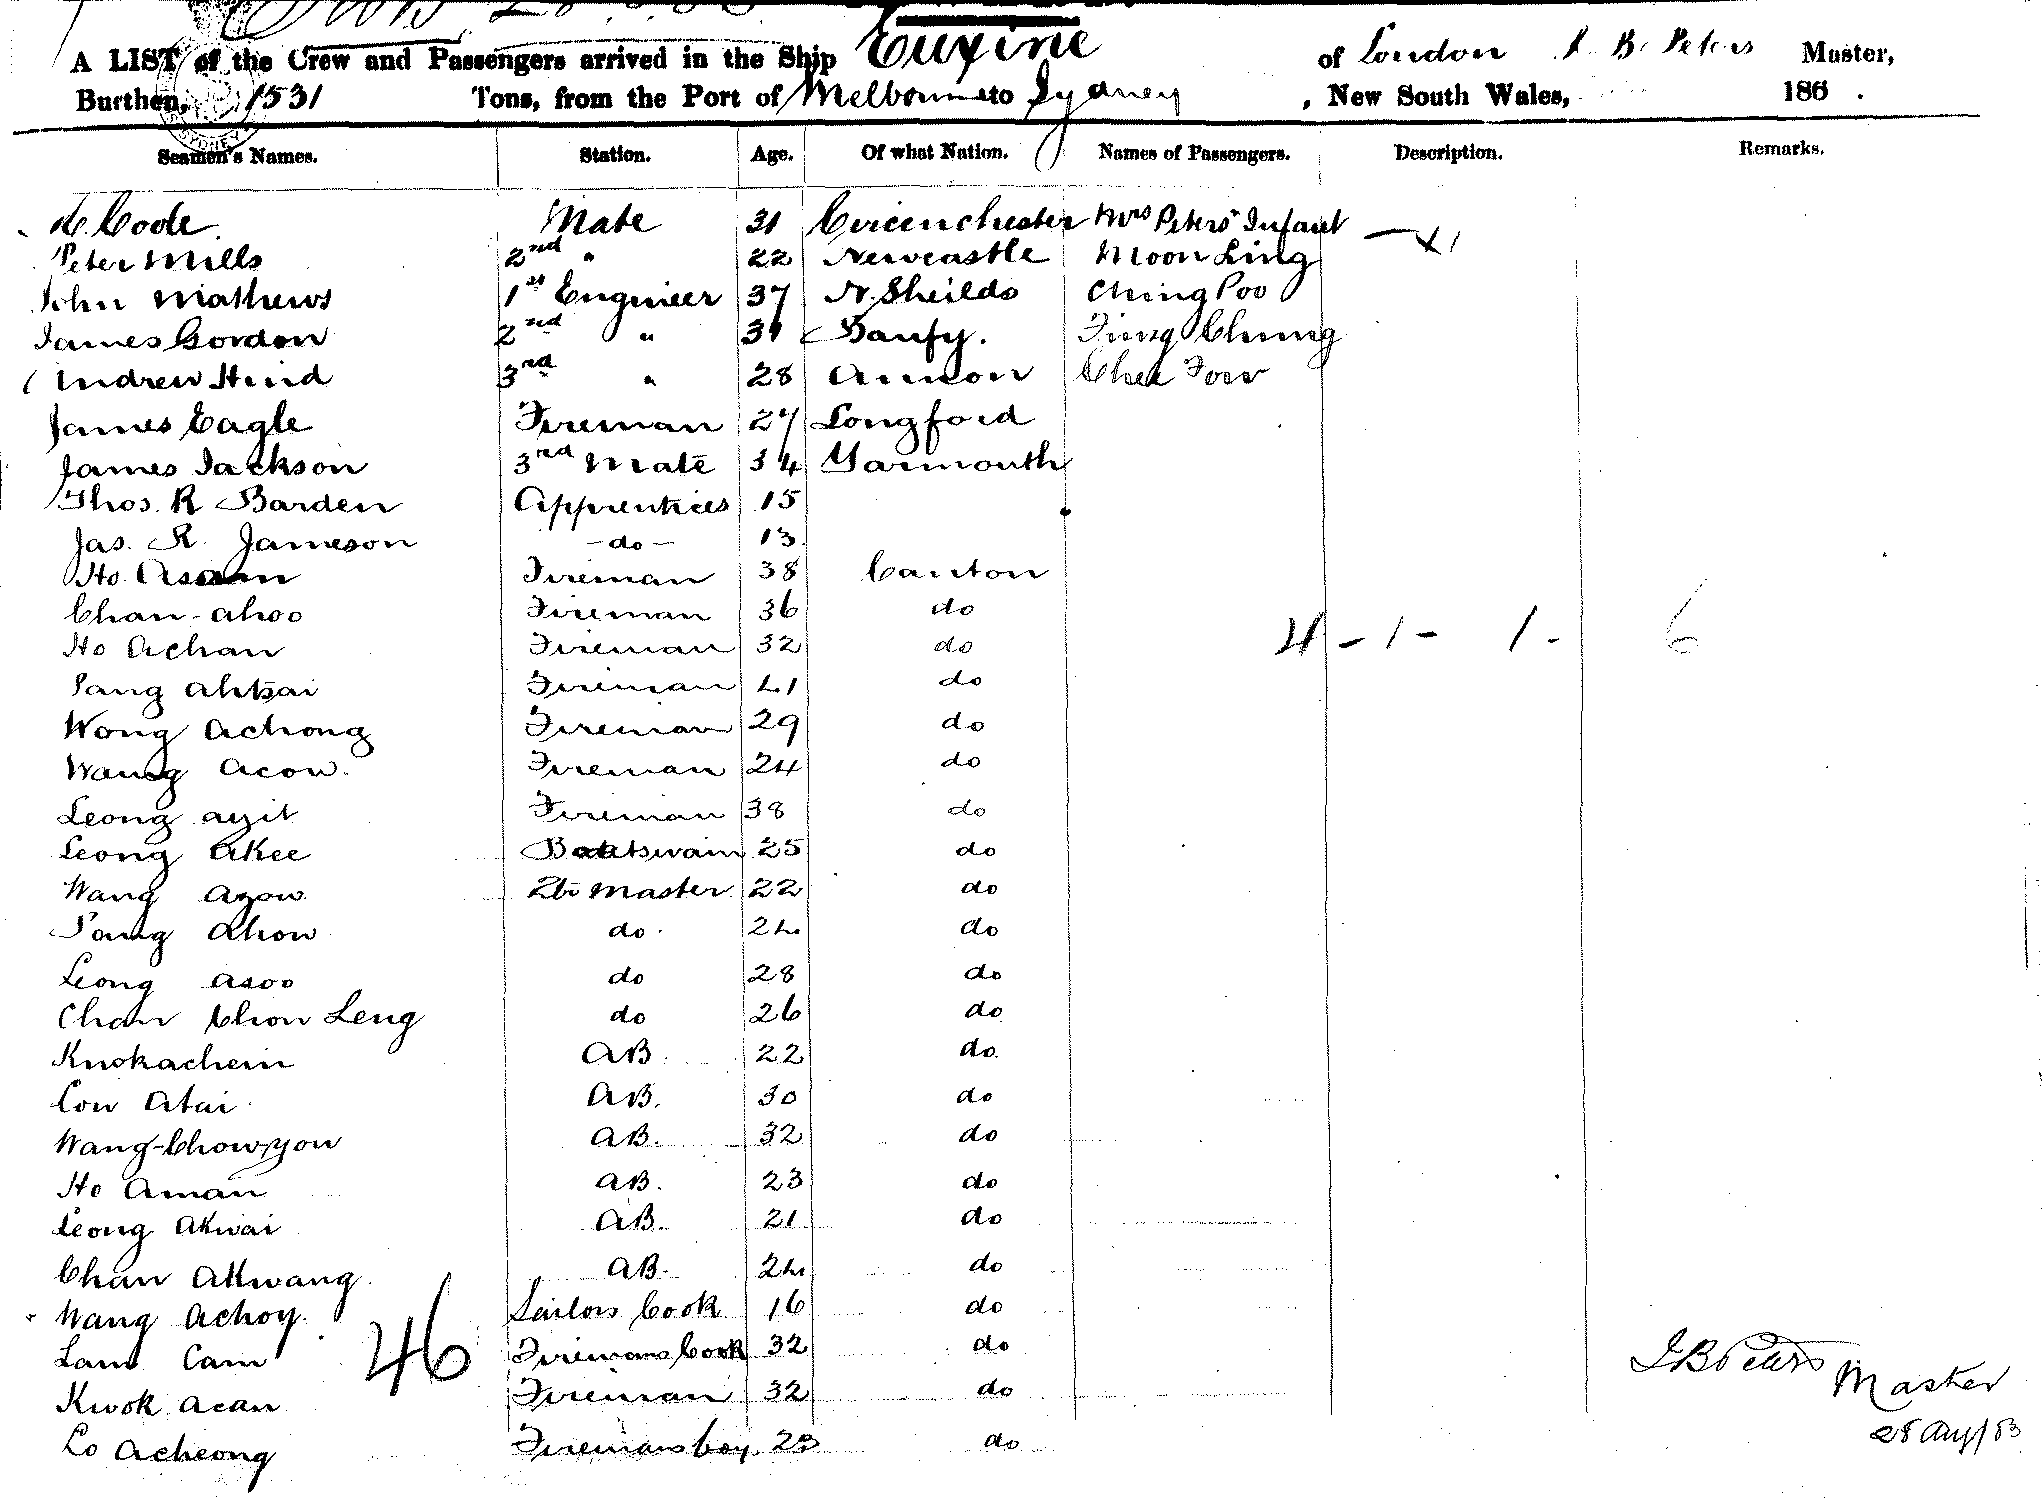 A LIST of the Crew and Passengers arrived in the Ship Euxine of London J. B. Peters Master,
Burthen, 1531 Tons, from the Port of Melbourne to Sydney, New South Wales, 186 .
Seamen's Names. Station. Age. Of what Nation. Names of Passengers. Description. Remarks.
Coode Mate 31 Cirenchester Mrs Peters Infant
Peter Mills 2nd " 22 Newcastle Moon Ling
John Mathews 1st Engineer 37 N. Sheilds Ching Poo
James Gordon 2nd " 31 Banfy. Fung Chung
Andrew Hind 3rd " 28 Annon Chee Fow
James Eagle Fireman 27 Longford
James Jackson 3rd Mate 34 Yarmouth
Thos. R Barden Apprentices 15
Jas. R. Jameson - do - 13
Ho Asam Fireman 38 Canton
Chan-ahoo Fireman 36 do
Ho Achan Fireman 32 do 4 - 1 - 1 - 6
Pang Ahtsai Fireman 41 do
Wong Achong Fireman 29 do
Wang Acow. Fireman 24 do
Leong ayit Fireman 38 do
Leong Akee Boatswain 25 do
Wang Azow Qtr Master 22 do
Pang Ahow do 24 do
Leong Asoo do 28 do
Chan Chow Leng do 26 do
Knokachein AB. 22 do
Cow Atai AB. 30 do
Wang-Chow-you AB. 32 do
Ho Aman AB. 23 do
Leong Akwai AB. 21 do
Chan Akwang AB. 24 do
Wang Achoy. Sailors Cook 16 do
46
Lam Cam Firemans Cook 32 do J B Peters Master
Kwok Acan Fireman 32 do
28 Aug/83
Lo Acheong Firemans boy 23 do